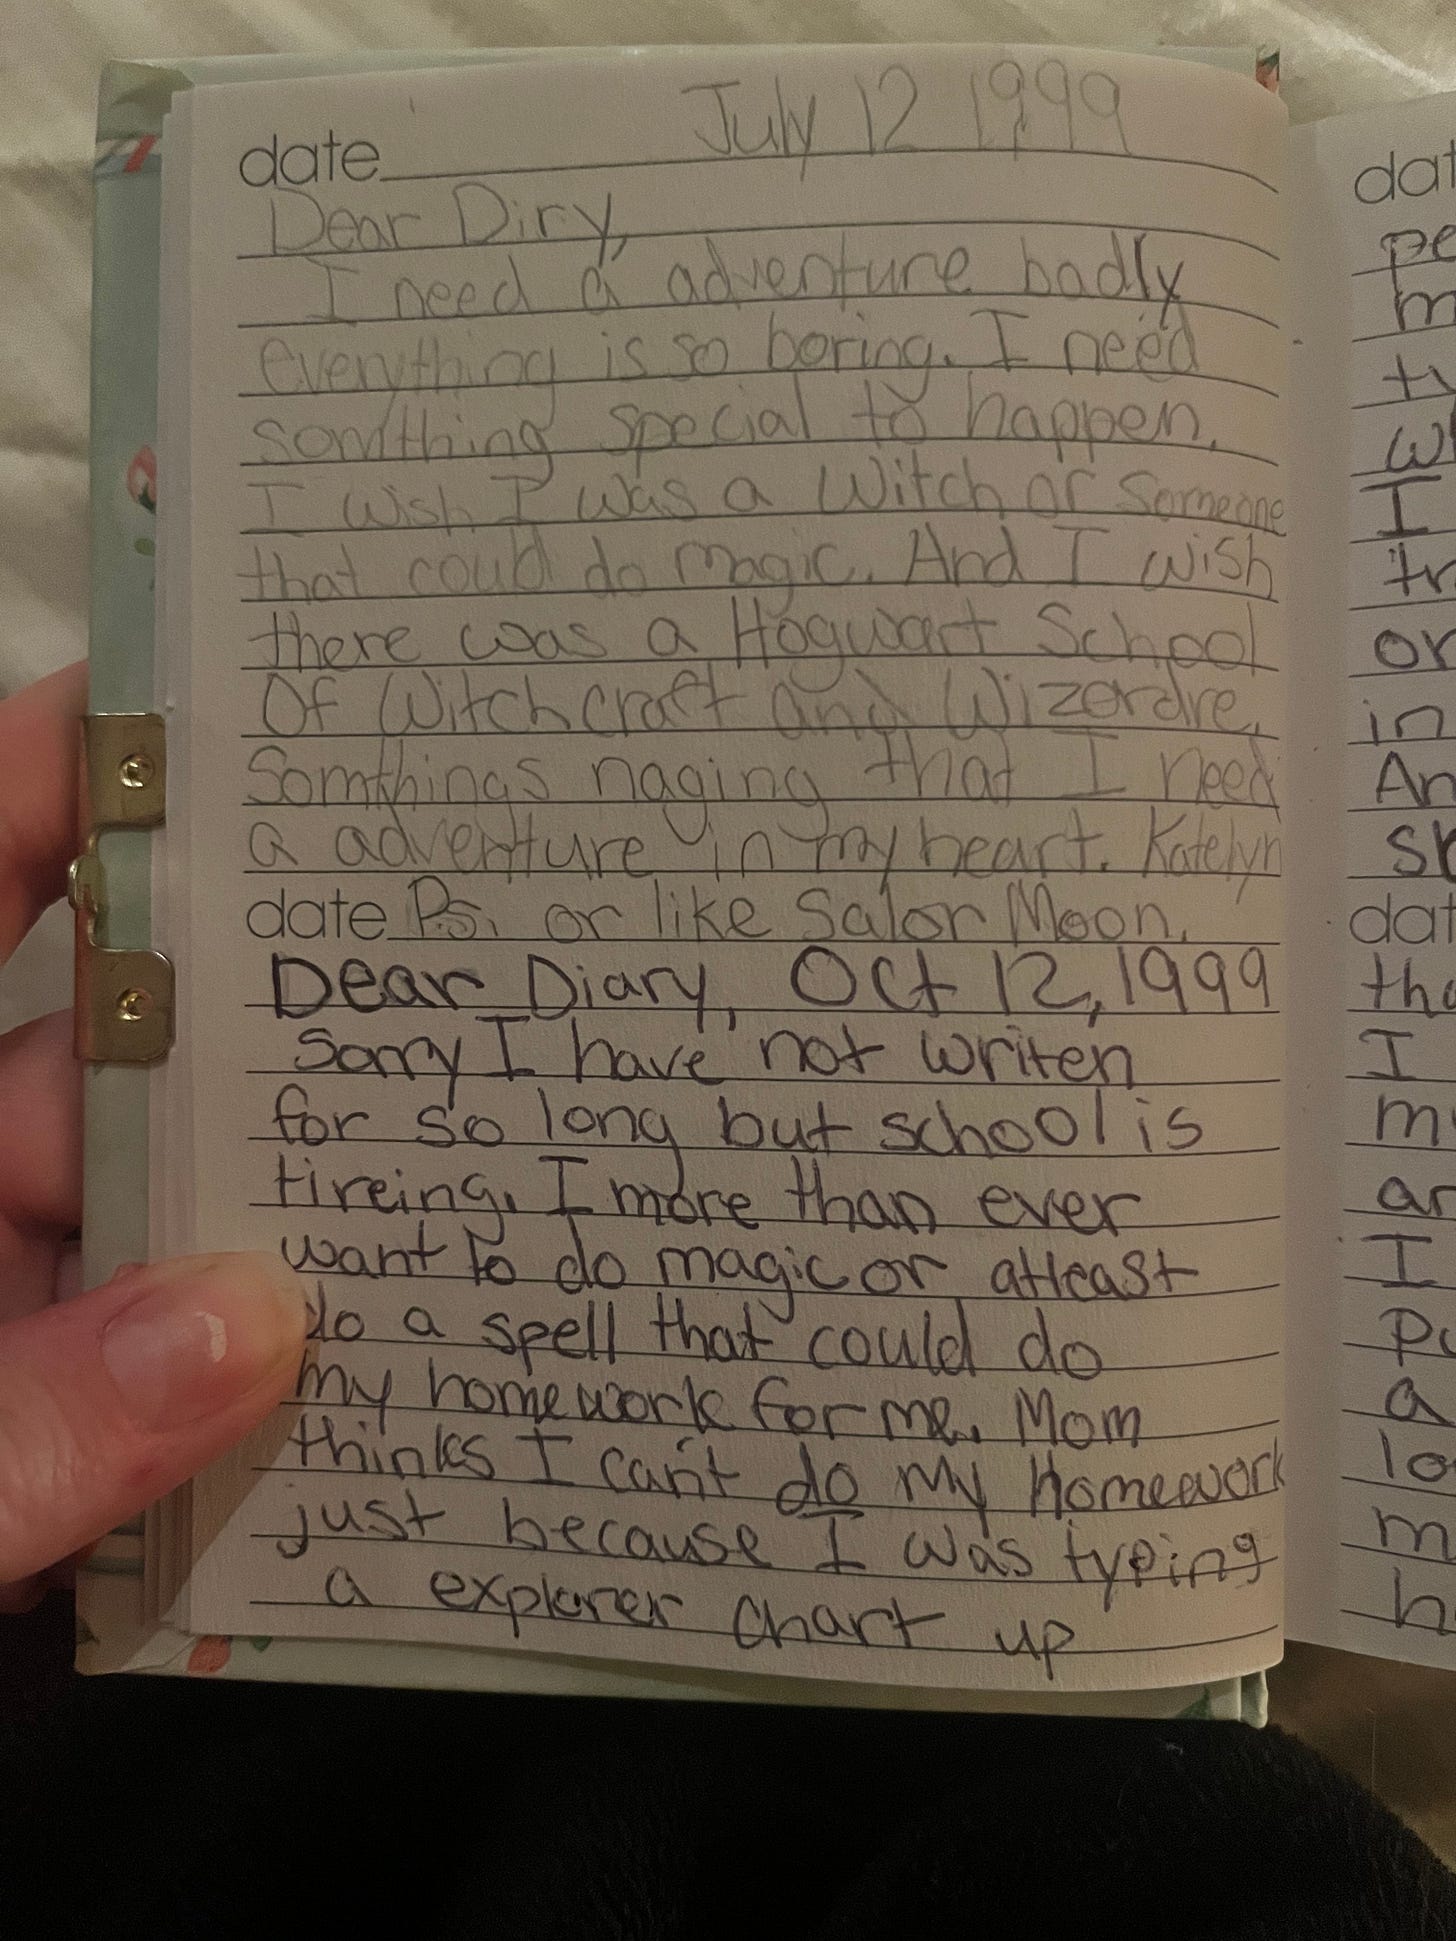 date July 12 1999
Dear Diry,
I need a adventure badly
everything is so boring. I need
somthing special to happen.
I wish I was a Witch or Someone
that could do magic. And I wish
there was a Hogwart School
Of Witchcraft and Wizerdre.
Somthings naging that I need
a adventure in my heart. Katelyn
date P.s. or like Salor Moon.
Dear Diary, Oct 12, 1999
Sorry I have not writen
for so long but school is
tireing. I more than ever
want to do magic or atleast
do a spell that could do
my homework for me. Mom
thinks I can't do my Homework
just because I was typing
a explorer chart up
dat
pe
m
tv
wh
I
tr
or
in
An
sk
dat
tha
I
m
ar
I
a
lo
m
h